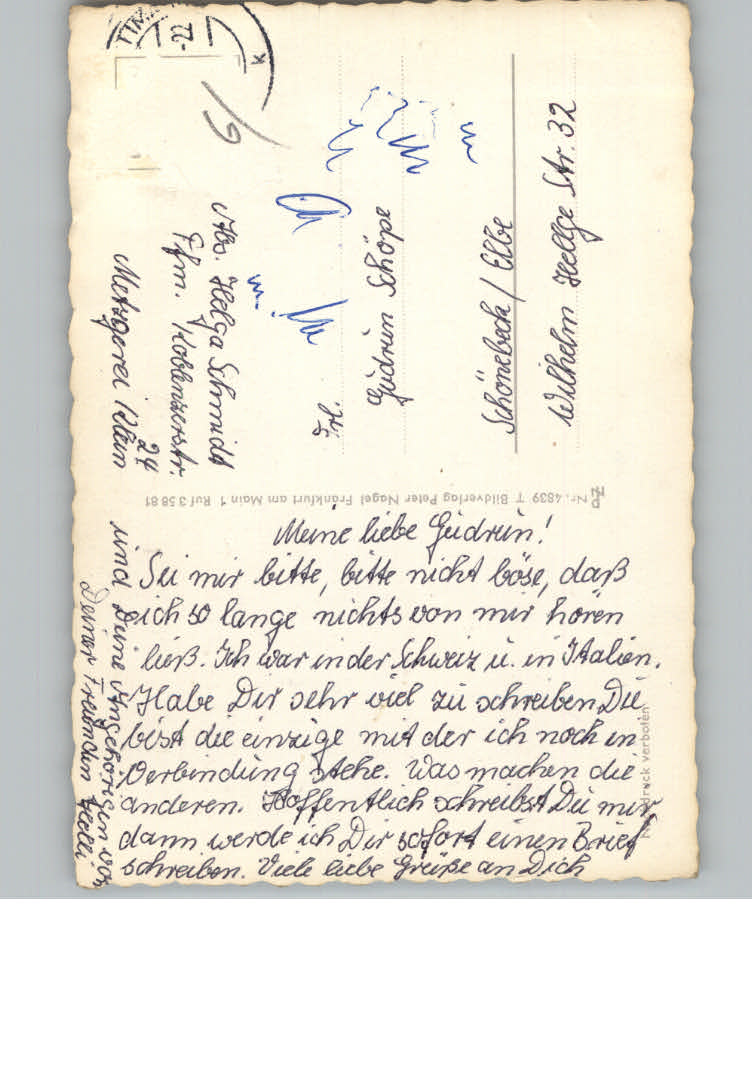 Meine liebe Gudrun!
Sei mir bitte, bitte nicht böse, daß
ich so lange nichts von mir hören
ließ. Ich war in der Schweiz u. in Italien.
Habe Dir sehr viel zu schreiben Du
bist die einzige mit der ich noch in
Verbindung stehe. Was machen die
anderen. Hoffentlich schreibst Du mir
dann werde ich Dir sofort einen Brief
schreiben. Viele liebe Grüße an Dich
und Deine Angehörigen von
Deiner Freundin Helli
Abs. Helga Schmidt
Ffm. Koblenzerstr.
24
Metzgerei Klein
Frl.
Gudrun Schöpe
Schönebeck / Elbe
Wilhelm Hellge Str. 32
Nr. 4839 T Bildverlag Peter Nagel Frankfurt am Main 1 Ruf 3 58 81
verboten
-22
K